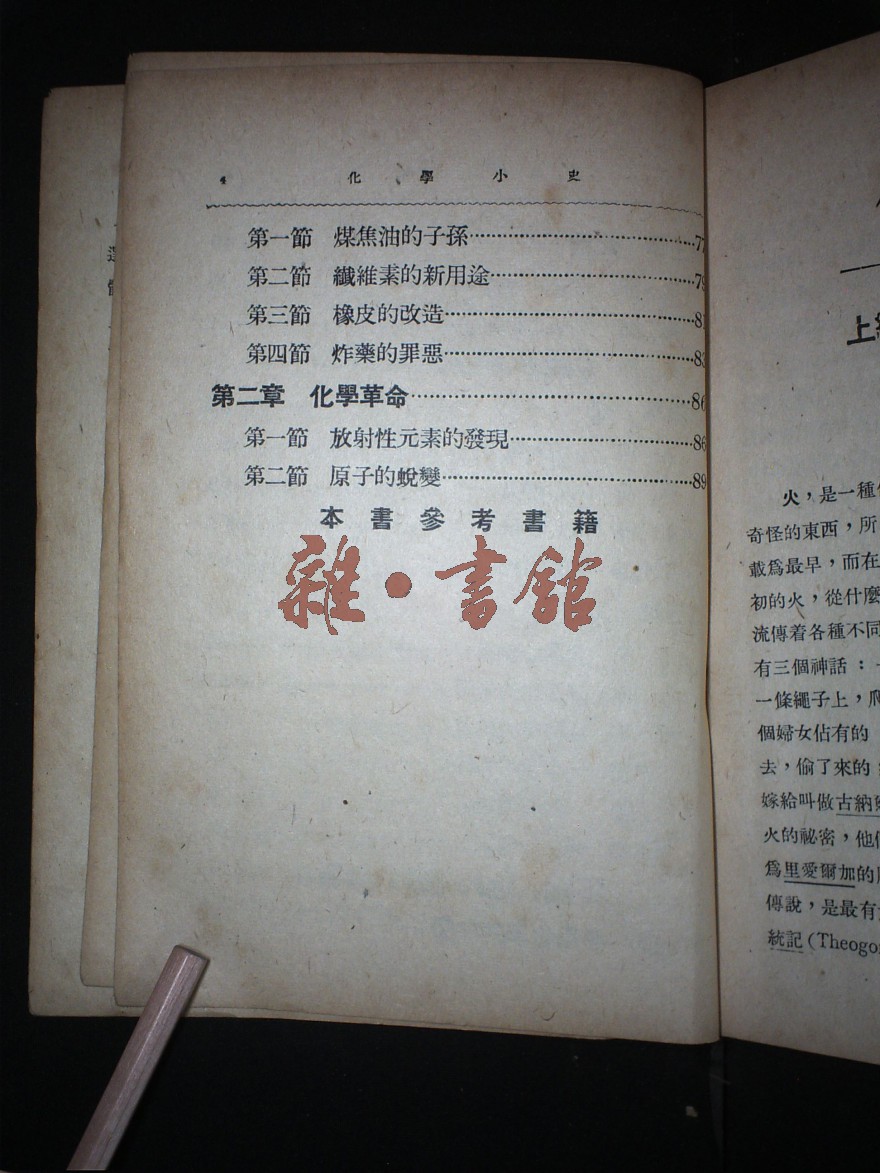 4 化學小史
第一節 煤焦油的子孫……77
第二節 纖維素的新用途……79
第三節 橡皮的改造……81
第四節 炸藥的罪惡……83
第二章 化學革命……86
第一節 放射性元素的發現……86
第二節 原子的蛻變……89
本書參考書籍
雜·書館
上
火,是一種
奇怪的東西,所
載爲最早,而在
初的火,從什麼
流傳着各種不同
有三個神話:
一條繩子上,爬
個婦女佔有的
去,偷了來的
嫁給叫做古納
火的祕密,他
爲里愛爾加的
傳說,是最有
統記(Theogo